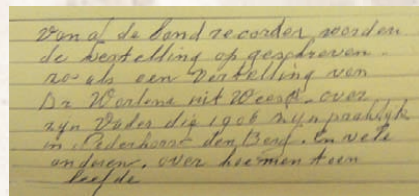 Van af de band recorder worden
de vertelling op geschreven.
zo als een Vertelling van
Dr Worlena uit Weesp. over
zijn Vader die 1906 zijn praktijk
in Nederhorst den Berg. En vele
anderen. over hoe men toen
leefde